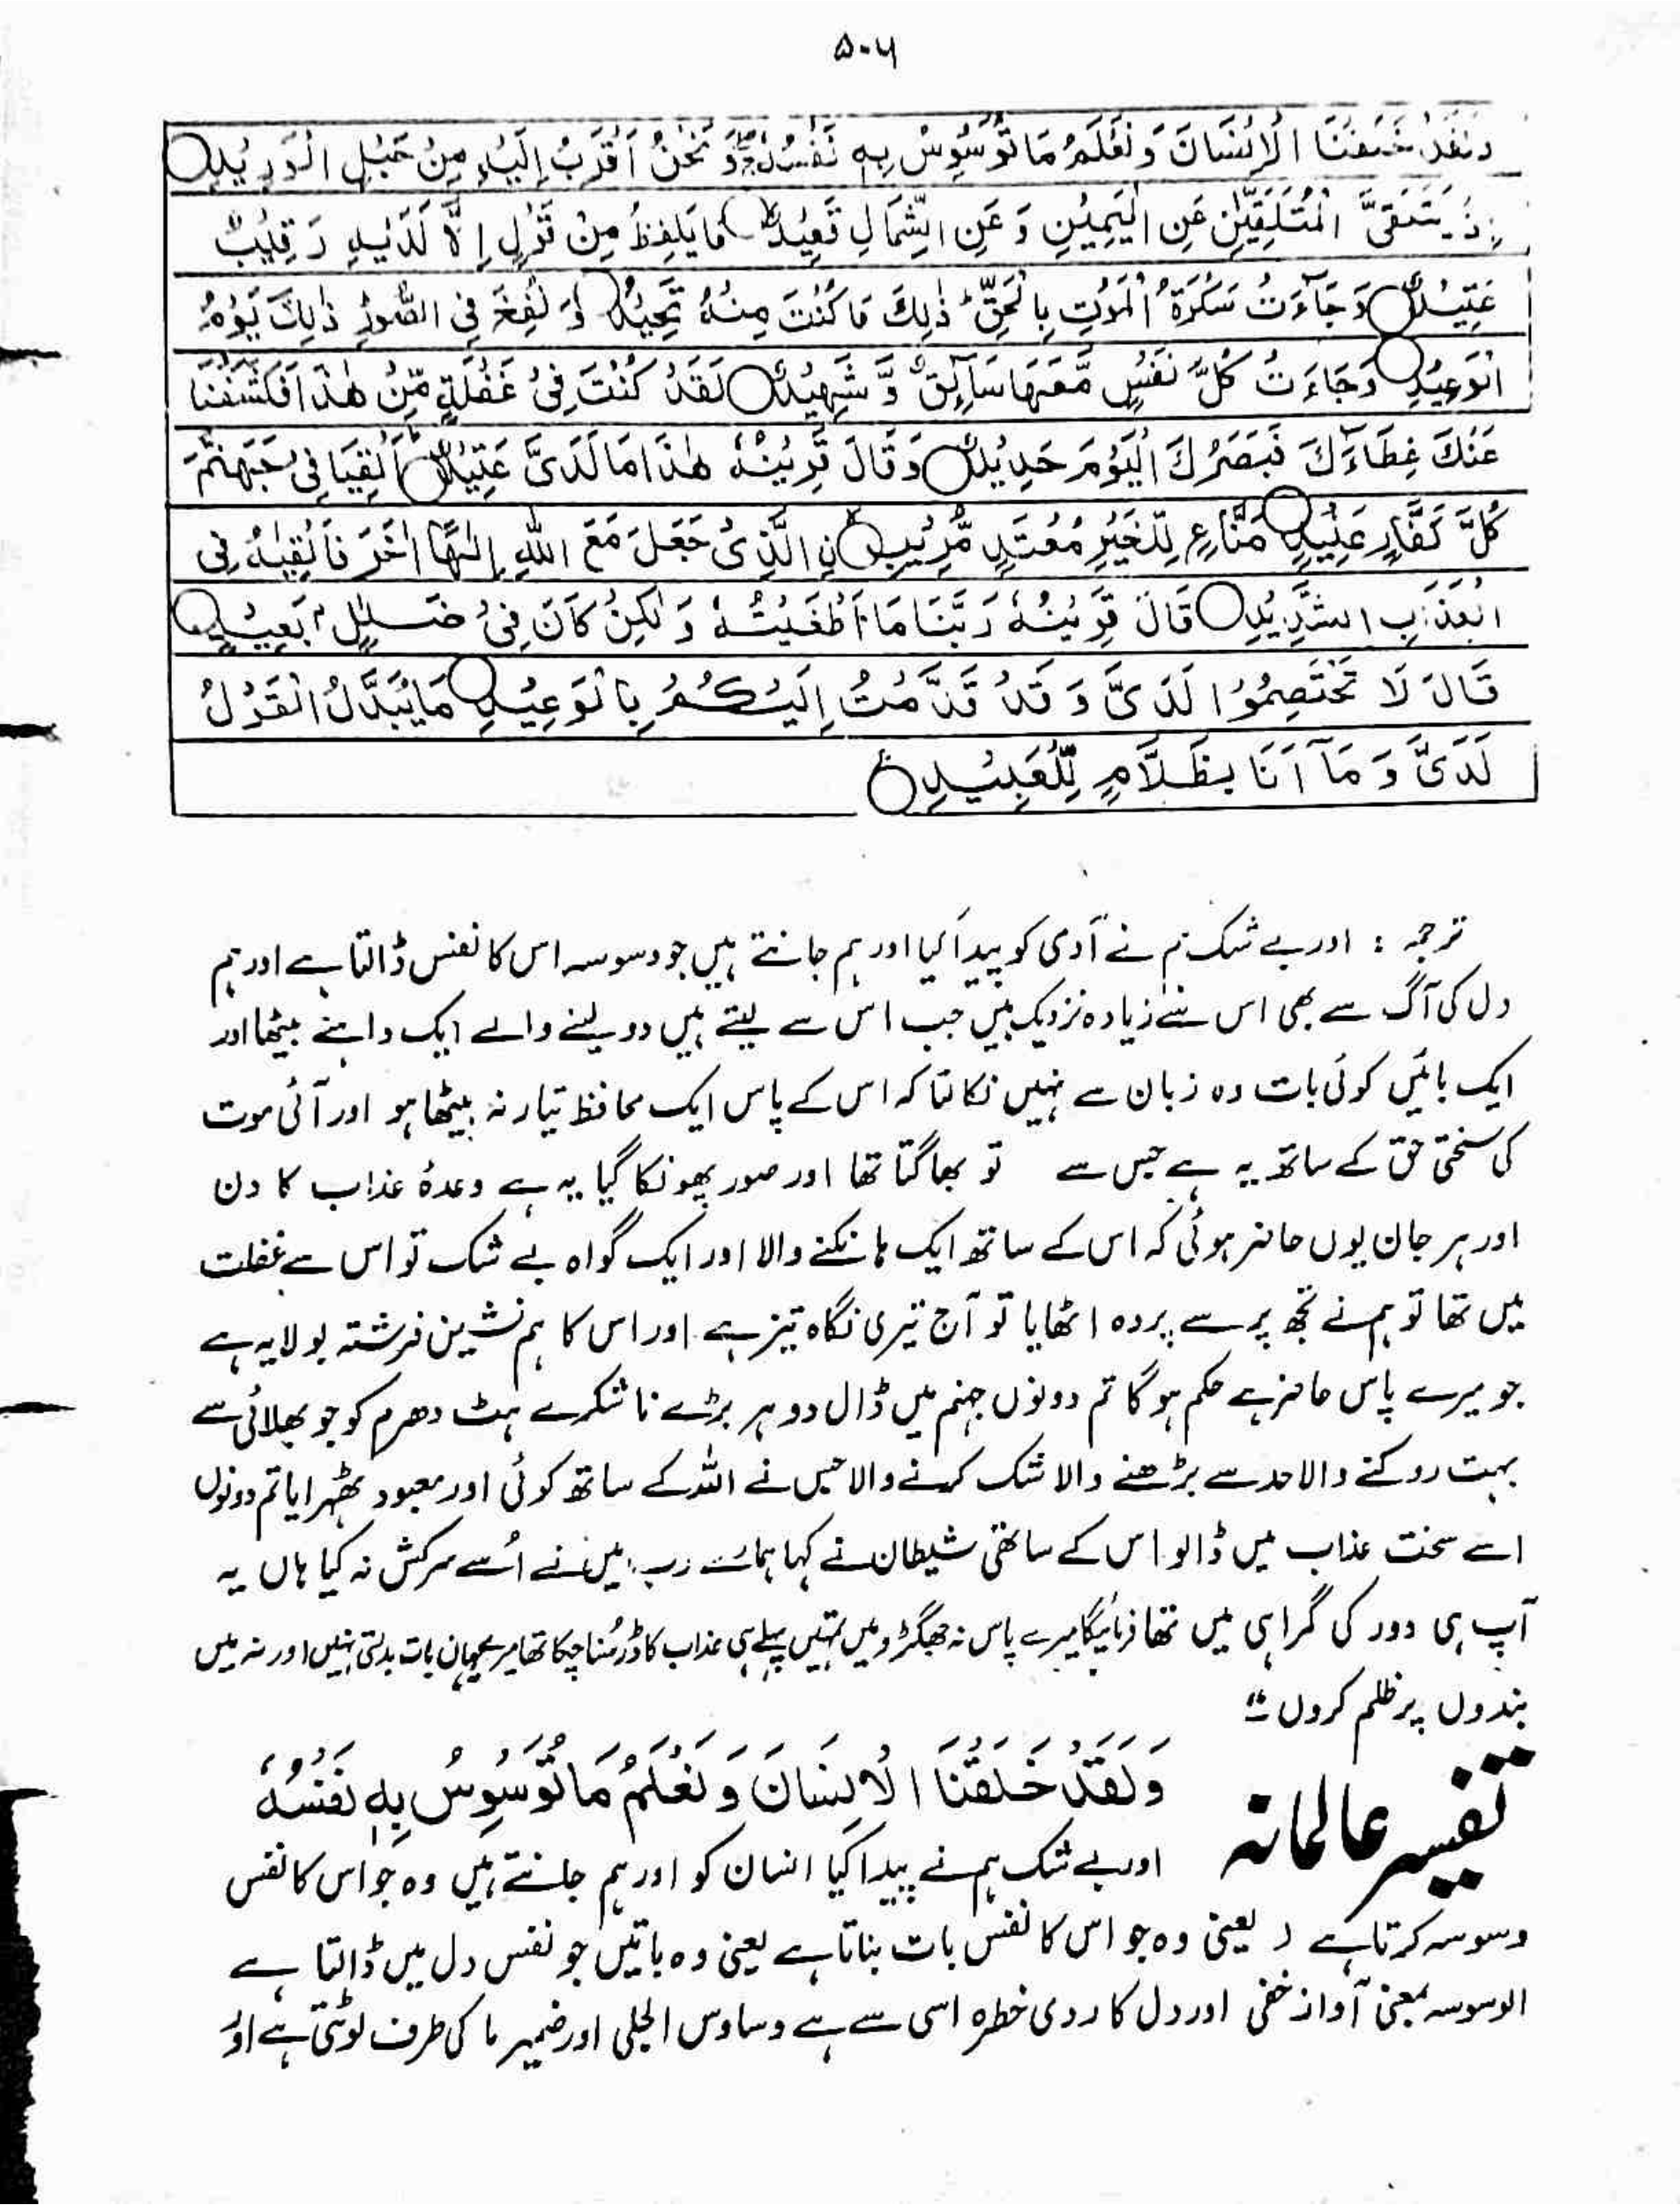 ۵۰۶
وَلَقَدْ خَلَقْنَا الْاِنْسَانَ وَنَعْلَمُ مَا تُوَسْوِسُ بِهٖ نَفْسُهٗ وَنَحْنُ اَقْرَبُ اِلَيْهِ مِنْ حَبْلِ الْوَرِيْدِ
اِذْ يَتَلَقَّى الْمُتَلَقِّيٰنِ عَنِ الْيَمِيْنِ وَعَنِ الشِّمَالِ قَعِيْدٌ مَا يَلْفِظُ مِنْ قَوْلٍ اِلَّا لَدَيْهِ رَقِيْبٌ
عَتِيْدٌ وَجَآءَتْ سَكْرَةُ الْمَوْتِ بِالْحَقِّ ذٰلِكَ مَا كُنْتَ مِنْهُ تَحِيْدُ وَنُفِخَ فِى الصُّوْرِ ذٰلِكَ يَوْمُ
الْوَعِيْدِ وَجَاءَتْ كُلُّ نَفْسٍ مَّعَهَا سَآئِقٌ وَّ شَهِيْدٌ لَقَدْ كُنْتَ فِىْ غَفْلَةٍ مِّنْ هٰذَا فَكَشَفْنَا
عَنْكَ غِطَآءَكَ فَبَصَرُكَ الْيَوْمَ حَدِيْدٌ وَقَالَ قَرِيْنُهٗ هٰذَا مَا لَدَىَّ عَتِيْدٌ اَلْقِيَا فِىْ جَهَنَّمَ
كُلَّ كَفَّارٍ عَنِيْدٍ مَنَّاعٍ لِّلْخَيْرِ مُعْتَدٍ مُّرِيْبِ نِ الَّذِىْ جَعَلَ مَعَ اللّٰهِ اِلٰهًا اٰخَرَ فَاَلْقِيٰهُ فِى
الْعَذَابِ الشَّدِيْدِ قَالَ قَرِيْنُهٗ رَبَّنَا مَا اَطْغَيْتُهٗ وَلٰكِنْ كَانَ فِىْ ضَلٰلٍ بَعِيْدٍ
قَالَ لَا تَخْتَصِمُوْا لَدَىَّ وَقَدْ قَدَّمْتُ اِلَيْكُمْ بِالْوَعِيْدِ مَا يُبَدَّلُ الْقَوْلُ
لَدَىَّ وَمَآ اَنَا بِظَلَّامٍ لِّلْعَبِيْدِ
ترجمہ : اور بے شک ہم نے آدمی کو پیدا کیا اور ہم جانتے ہیں جو وسوسہ اس کا نفس ڈالتا ہے اور ہم
دل کی آگ سے بھی اس سے زیادہ نزدیک ہیں جب اس سے لیتے ہیں دو لینے والے ایک داہنے بیٹھا اور
ایک بائیں کوئی بات وہ زبان سے نہیں نکالتا کہ اس کے پاس ایک محافظ تیار نہ بیٹھا ہو اور آئی موت
کی سختی حق کے ساتھ یہ ہے جس سے تو بھاگتا تھا اور صور پھونکا گیا یہ ہے وعدۂ عذاب کا دن
اور ہر جان یوں حاضر ہوئی کہ اس کے ساتھ ایک ہانکنے والا اور ایک گواہ بے شک تو اس سے غفلت
میں تھا تو ہم نے تجھ پر سے پردہ اٹھایا تو آج تیری نگاہ تیز ہے اور اس کا ہم نشین فرشتہ بولا یہ ہے
جو میرے پاس حاضر ہے حکم ہوگا تم دونوں جہنم میں ڈال دو ہر بڑے ناشکرے ہٹ دھرم کو جو بھلائی سے
بہت روکنے والا حد سے بڑھنے والا شک کرنے والا جس نے اللہ کے ساتھ کوئی اور معبود ٹھہرایا تم دونوں
اسے سخت عذاب میں ڈالو اس کے ساتھی شیطان نے کہا ہمارے رب میں نے اُسے سرکش نہ کیا ہاں یہ
آپ ہی دور کی گمراہی میں تھا فرمائیگا میرے پاس نہ جھگڑو میں تمہیں پہلے ہی عذاب کا ڈر سُنا چکا تھا میرے یہاں بات بدلتی نہیں اور نہ میں
بندوں پر ظلم کروں ۔"
تفسیر عالمانہ
وَلَقَدْ خَلَقْنَا الْاِنْسَانَ وَنَعْلَمُ مَا تُوَسْوِسُ بِهٖ نَفْسُهٗ
اور بے شک ہم نے پیدا کیا انسان کو اور ہم جانتے ہیں وہ جو اس کا نفس
وسوسہ کرتا ہے ( یعنی وہ جو اس کا نفس بات بناتا ہے یعنی وہ باتیں جو نفس دل میں ڈالتا ہے
الوسوسہ بمعنی آواز خفی اور دل کا ردی خطرہ اسی سے ہے وساوس الحلی اور ضمیر ما کی طرف لوٹتی ہے اور